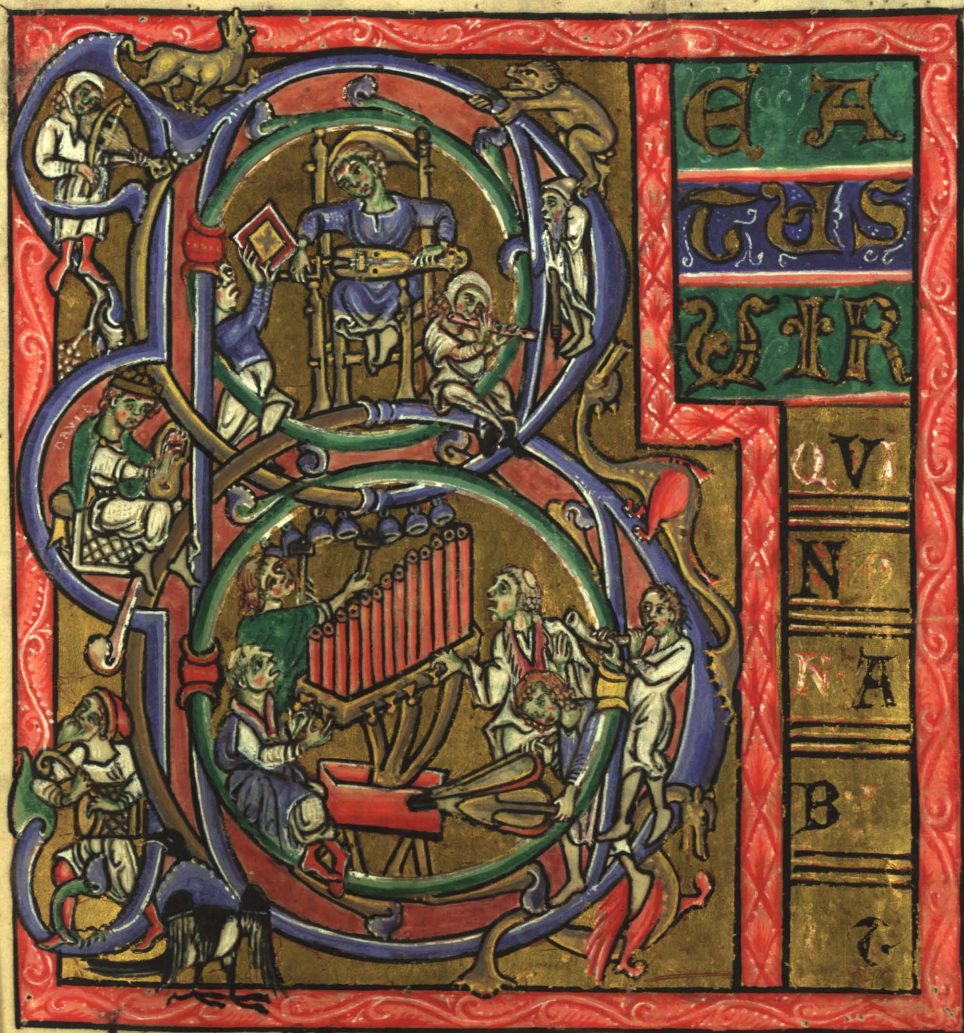 B
EA
TUS
UIR
QVI
NO
N A
B
T